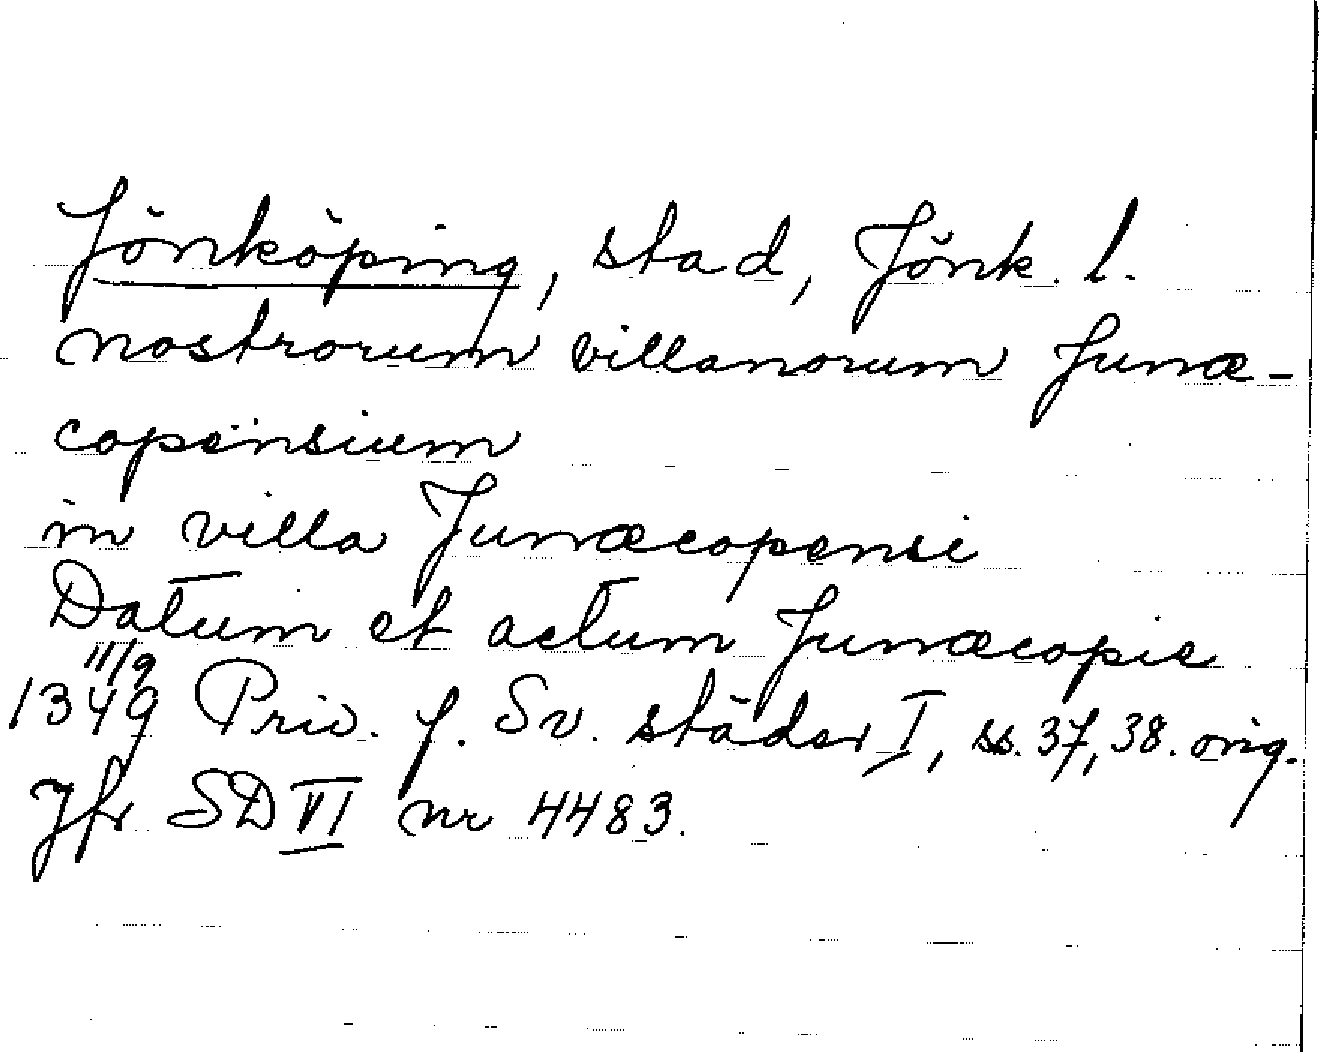 Jönköping, stad, Jönk. l.
nostrorum villanorum Junæ-
copensium
in villa Junæcopensi
Datum et actum Junæcopie
11/9
1349 Priv. f. Sv. städer I, ss. 37, 38. orig.
Jfr SD VI nr 4483.